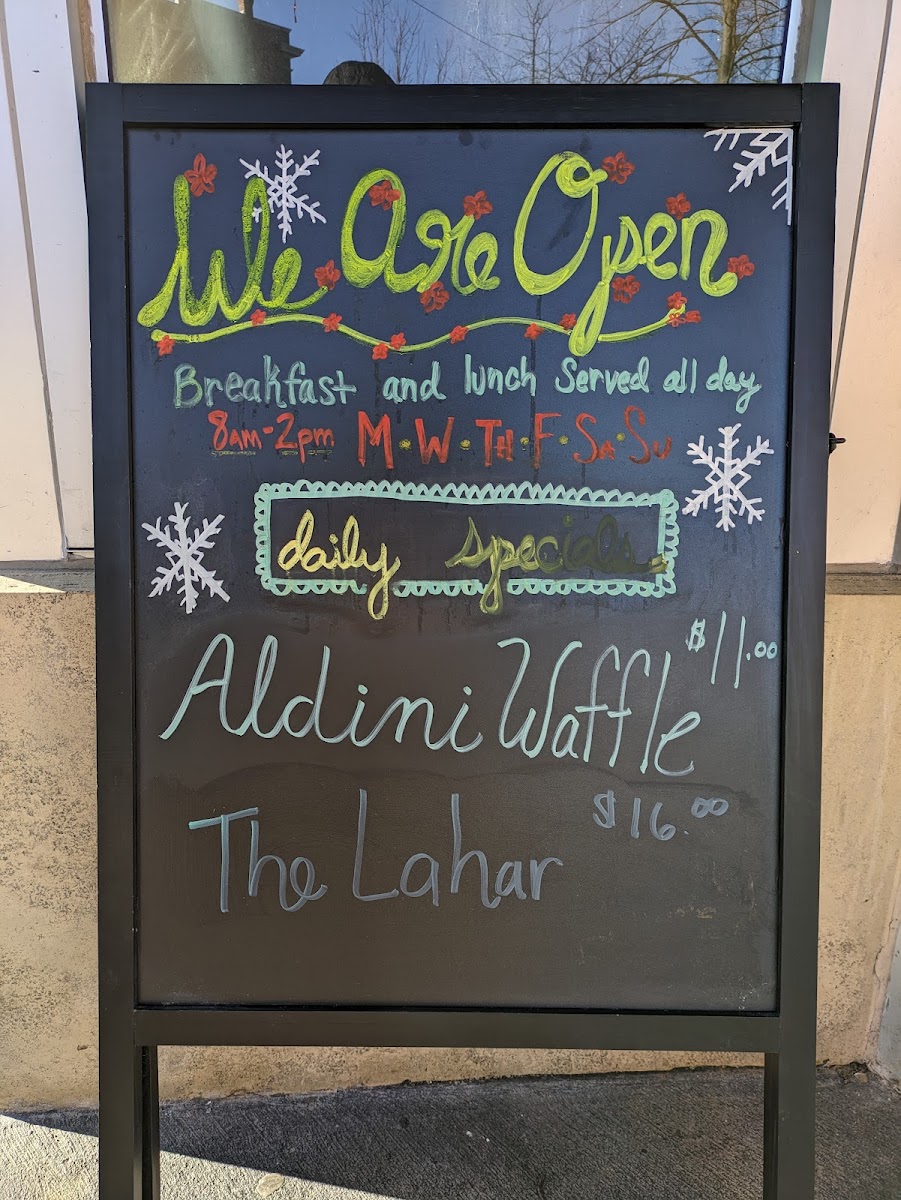 We Are Open
Breakfast and lunch Served all day
8am-2pm M•W•TH•F•Sa•Su
daily specials
Aldini Waffle $11.00
The Lahar $16.00